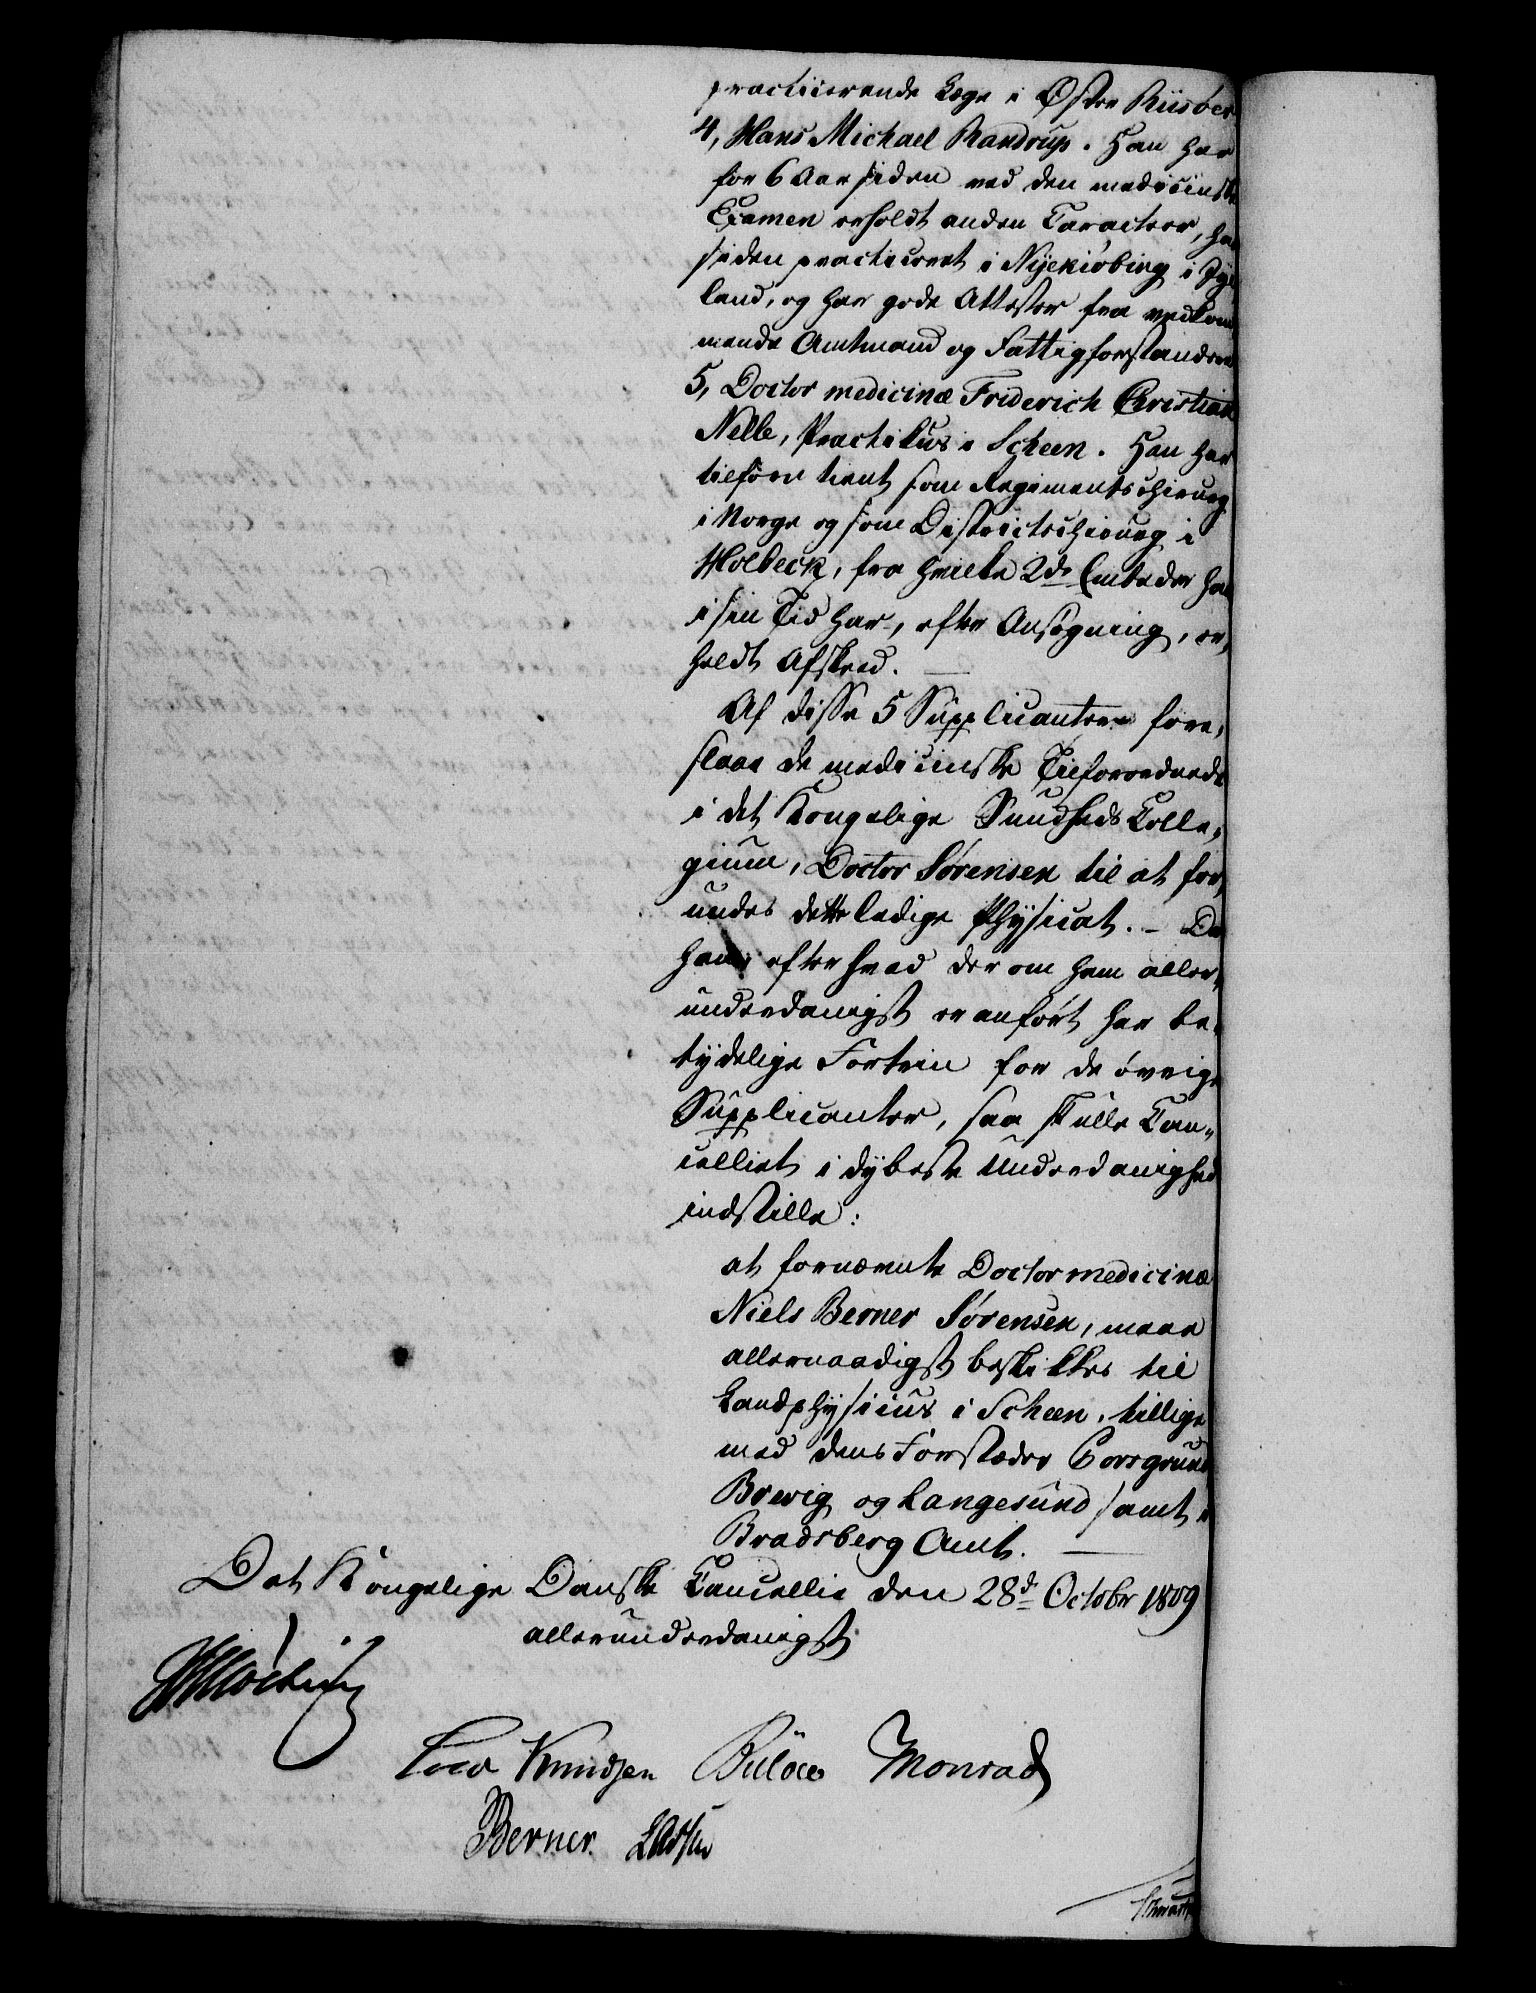 practiserende Læge i Østre Riisöer
4, Hans Michael Randrup. Han har
for 6 Aar siden ved den medicinske
Examen erholdt anden Caracteer, har
siden practiseret i Nyekiöbing i Jyl-
land, og har gode Attester fra vedkom-
mende Amtmand og Fattigforstandere
5, Doctor medicinæ Friderich Christian
Nelle, Practikus i Scheen. Han har
tilforn tient som Regimentschirurg
i Norge og som Districtschirurg i
Holbeck, fra hvilke 2de Embeder han
i sin Tid har, efter Ansøgning, er-
holdt Afskeed.
Af disse 5 Supplicantere fore-
slaae de medicinske Tilforordnede
i det Kongelige Sundheds Colle-
gium, Doctor Sørensen til at for-
undes dette ledige Physicat. - Da
han, efter hvad der om ham aller-
underdanigst er anført har be-
tydelige Fortrin for de øvrige
Supplicanter, saa skulle Can-
celliet i dybeste Underdanighed
indstille:
at fornævnte Doctor medicinæ
Niels Berner Sørensen, maae
allernaadigst beskikkes til
Landphysicus i Scheen, tillige
med dens Forstæder Porsgrund
Brevig og Langesund samt i
Bradsberg Amt.
Det Kongelige Danske Cancellie den 28de October 1809
allerunderdanigst
Knudsen Bülow Monrad
Berner. Lassen